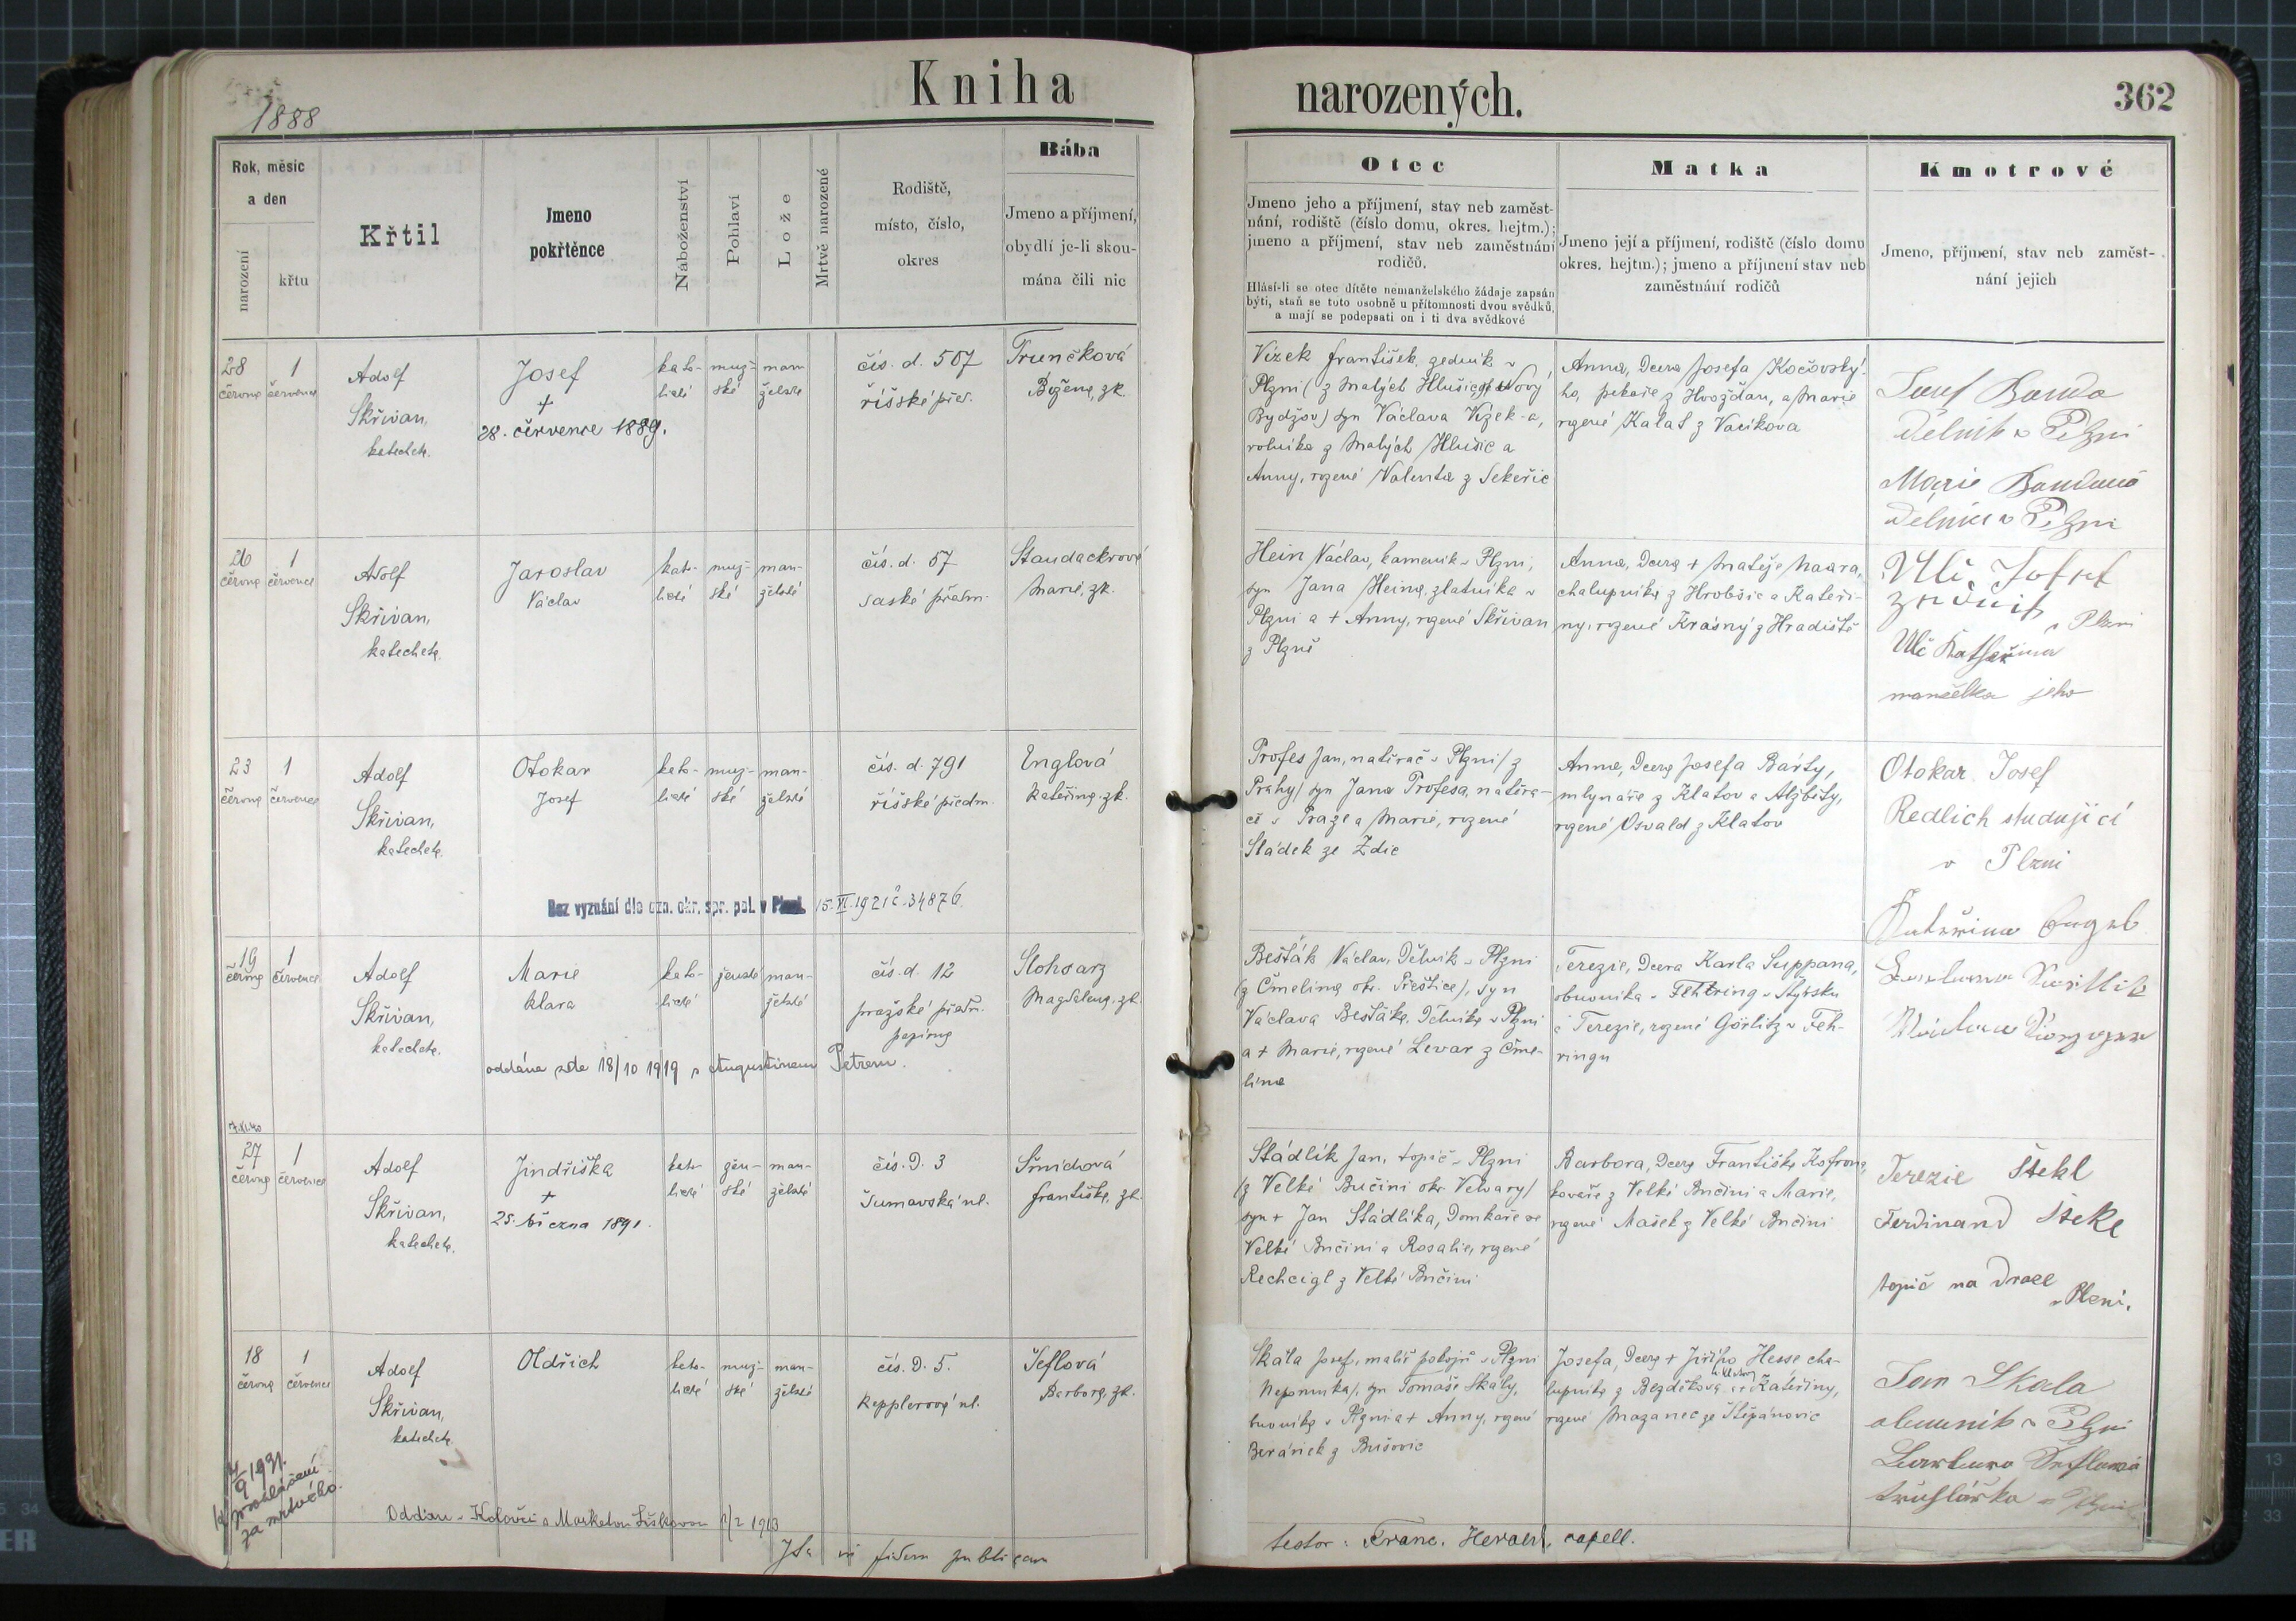 Kniha narozených.
362
1888
Rok, měsíc
a den
narození
křtu
Křtil
Jmeno
pokřtěnce
Náboženství
Pohlaví
Lože
Mrtvě narozené
Rodiště,
místo, číslo,
okres
Bába
Jmeno a příjmení,
obydlí je-li skou-
mána čili nic
Otec
Jmeno jeho a příjmení, stav neb zaměst-
nání, rodiště (číslo domu, okres. hejtm.);
jmeno a příjmení, stav neb zaměstnání
rodičů.
Hlásí-li se otec dítěte nemanželského žádaje zapsán
býti, staň se toto osobně u přítomnosti dvou svědků,
a mají se podepsati on i ti dva svědkové
Matka
Jmeno její a příjmení, rodiště (číslo domu
okres. hejtm.); jmeno a příjmení stav neb
zaměstnání rodičů
Kmotrové
Jmeno, příjmení, stav neb zaměst-
nání jejich
28
června
1
července
Adolf
Skřivan,
katecheta.
Josef
+
28. července 1889.
kato-
lické
muž-
ské
man
želské
čís. d. 507
říšské před.
Trunčková
Božena, zk.
Vízek František, zedník v
Plzni (z Malých Hlušic, Nový
Bydžov) syn Václava Vízek-a,
rolníka z Malých Hlušic a
Anny, rozené Valenta z Sekeřic
Anna, dcera Josefa Kočovský-
ho, pekaře z Hvožďan, a Marie
rozené Kalaš z Vacíkova
Josef Banda
dělník v Plzni
Marie Bandová
dělnice v Plzni
26
června
1
července
Adolf
Skřivan,
katecheta.
Jaroslav
Václav
kato-
lické
muž-
ské
man-
želské
čís. d. 57
saské předm.
Staudackrová
Marie, zk.
Hein Václav, kameník v Plzni,
syn Jana Heina, zlatníka v
Plzni a + Anny, rozené Skřivan
z Plzně
Anna, dcera + Matěje Maara,
chalupníka z Hrobšic a Kateři-
ny, rozené Krásný z Hradiště
Ulč Josef
zedník v Plzni
Ulč Katharina
manželka jeho
23
června
1
července
Adolf
Skřivan,
katecheta.
Otokar
Josef
kato-
lické
muž-
ské
man-
želské
čís. d. 791
říšské předm.
Englová
Kateřina, zk.
Bez vyznání dle ozn. okr. spr. pol. v Plzni. 15.VI.1921 č. 34876
Profes Jan, natěrač v Plzni (z
Prahy) syn Jana Profesa, natěra-
če v Praze a Marie, rozené
Sládek ze Zdic
Anna, dcera Josefa Bárty,
mlynáře z Klatov a Alžběty,
rozené Osvald z Klatov
Otokar Josef
Redlich studující
v Plzni
Kateřina Engel
19
června
1
července
Adolf
Skřivan,
katecheta.
Marie
Klara
kato-
lické
ženské
man-
želské
čís. d. 12
pražské předm.
papírna
Slohsarz
Magdalena, zk.
oddána zde 18/10 1919 s Augustinem Petrem.
Bešťák Václav, dělník v Plzni
(z Čmelína okr. Přeštice), syn
Václava Bešťáka, dělníka v Plzni
a + Marie, rozené Levar z Čme-
lína
Terezie, dcera Karla Suppana,
obuvníka v Fehring v Štýrsku
a Terezie, rozené Görlitz v Feh-
ringu
27
června
1
července
Adolf
Skřivan,
katecheta.
Jindřiška
+
25. března 1891.
kato-
lické
žen-
ské
man-
želské
čís. d. 3
Šumavská ul.
Šmídová
Františka, zk.
Stádlík Jan, topič v Plzni
(z Velké Bučiny okr. Velvary)
syn + Jan Stádlíka, domkaře ve
Velké Bučině a Rosalie, rozené
Rechcigl z Velké Bučiny
Barbora, dcera Františka Kofrona,
kováře z Velké Bučiny a Marie,
rozené Mašek z Velké Bučiny
Terezie Štekl
Ferdinand Štekl
topič na draze
v Plzni.
18
června
1
července
Adolf
Skřivan,
katecheta
Oldřich
kato-
lické
muž-
ské
man-
želské
čís. d. 5.
Kepplerova ul.
Šeflová
Barbora, zk.
Skála Josef, malíř pokojů v Plzni
Nepomuka), syn Tomáše Skály,
v Plzni a + Anny, rozené
Beránek z Bušovic
Josefa, dcera + Jiřího Hesse cha-
lupníka z Bezděkova a + Kateřiny,
rozené Mazanec ze Štěpánovic
Jan Skala
alumnik v Plzni
Barbora Šeflová
truhlářka v Plzni
9 1931.
prohlášení
za mrtvého.
Oddán v Koloveči s Marketou Liškovou 2/2 1913
Ita in fidem publicam
testor: Franc. Herold, capell.